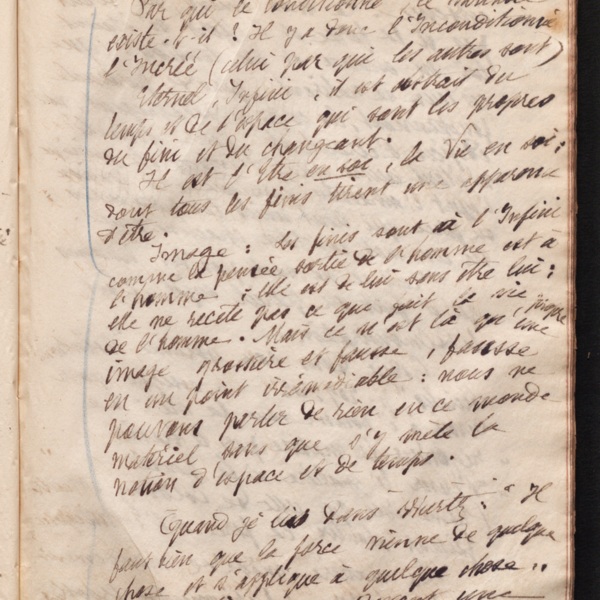 Par qui le conditionné, le
existe-t-il ? Il y a donc l'Inconditionné
l'Incréé (celui par qui les autres sont)
Eternel, Infini, il est abstrait du
temps et de l'espace qui sont les propres
du fini et du changeant.
Il est l'Etre en soi, la Vie en soi :
dont tous les finis tirent une apparence
d'être.
Image : les finis sont à l'Infini
comme la pensée sortie de l'homme est à
l'homme ; elle est de lui sans être lui :
elle ne recèle pas ce que fait la vie propre
de l'homme. Mais ce n'est là qu'une
image grossière et fausse, fausse
en un point irrémédiable : nous ne
pouvons parler de rien en ce monde
matériel sans que s'y mêle la
notion d'espace et de temps.
Quand je lis dans : "Il
faut bien que la force vienne de quelque
chose et s'applique à quelque chose..